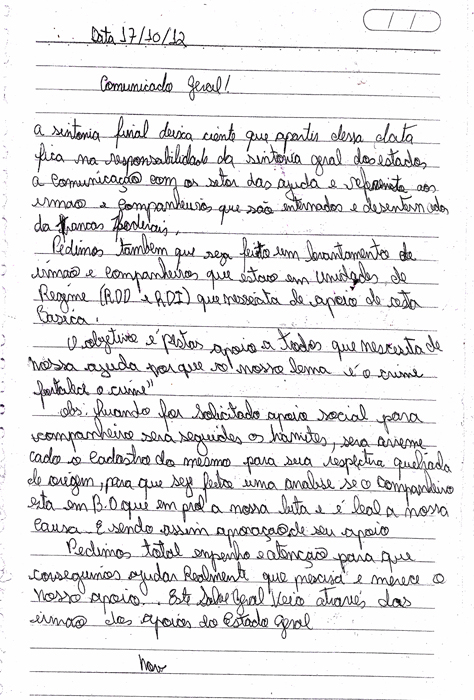 Data 17/10/12
Comunicado Geral!
a sintonia final deixa ciente que apartir dessa data
fica na responsabilidade da sintonia geral dos estados
a Comunicação com os setor das ajuda e referente aos
irmão e Companheiros que são internados e desinternados
da trancas Federais,
Pedimos também que seja feito um levantamento de
irmão e Companheiros que estava em Unidades de
Regime (RDD e RDI) que nessesita de apoio de cesta
Basica.
O objetivo é prestas apoio a trodos que nescesita de
nossa ajuda por que "o nosso lema é o crime
fortalece o crime"
obs. Quando for solicitado apoio social para
companheiro sera seguides os tramites, sera arreme
cado o Cadastro do mesmo para sua respectiva quebrada
de origem, para que seje feito uma analise se o Companheiro
esta em B.O que em prol a nossa luta e é leal a nossa
Causa. E sendo assim aprovação de seu apoio
Pedimos total empenho e atenção para que
conseguimos ajudar Realmente que precisa e merece o
nosso apoio... Este Salve Geral Veio através das
irmão dos apoios do Estado Geral